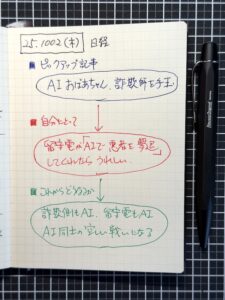 25.1002(木) 日経
■ピックアップ記事
AIおばあちゃん、詐欺師を手玉
■自分にとって
留守電が「AIで患者を撃退」
してくれたらうれしい。
■これからどうなるか
詐欺側もAI、留守電もAI
AI同士の空しい戦いとなる